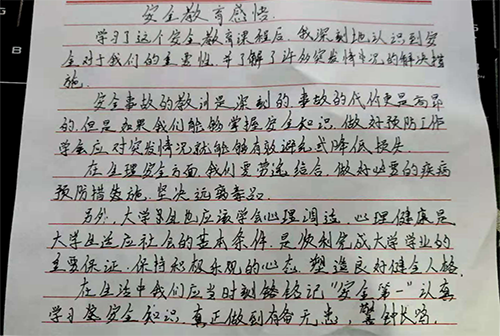 安全教育感悟
学习了这个安全教育课程后,我深刻地认识到安
全对于我们的重要性,并了解了许多突发情况的解决措
施。
安全事故的教训是深刻的,事故的代价更是高昂
的,但是如果我们能够掌握安全知识,做好预防工作
学会应对突发情况,就能够有效避免或降低损失。
在生理安全方面,我们要劳逸结合,做好必要的疾病
预防措施,坚决远离毒品。
另外,大学生也应该学会心理调适,心理健康是
大学生适应社会的基本条件,是顺利完成大学学业的
主要保证,保持积极乐观的心态,塑造良好健全人格。
在生活中我们应当时刻铭记"安全第一",认真
学习安全知识,真正做到有备无患,警钟长鸣。